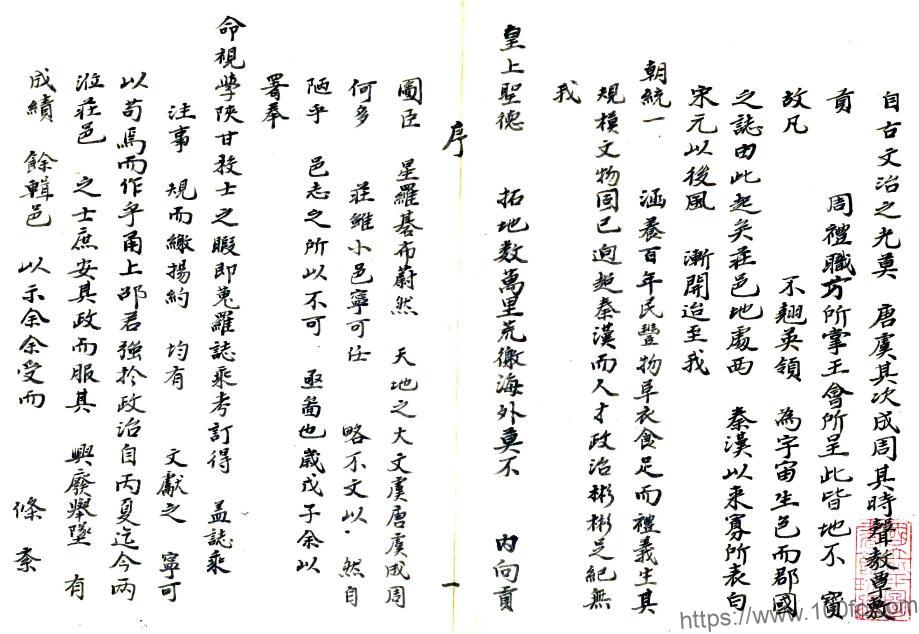 自古文治之光莫 唐虞其次成周其時聲教覃敷
貢 周禮職方所掌王會所呈此皆地不 寶
故凡 不翹英領 為宇宙生色而郡國
之誌由此起矣莊邑地處西 秦漢以來寡所表白
宋元以後風 漸開迨至我
朝統一 涵養百年民豐物阜衣食足而禮義生其
規模文物固已迥超秦漢而人才政治彬彬足紀無
我
皇上聖德 拓地数萬里荒徼海外莫不 内向貢
序
一
圖臣 星羅碁布蔚然 天地之大文虞唐虞成周
何多 莊雖小邑寧可任 略不文以 然自
陋乎 邑志之所以不可 亟啚也歲戊子余以
署奉
命視學陝甘校士之暇即蒐羅誌乘考訂得 盖誌乘
注事 規而繳揚約 均有 文獻之 寧可
以苟焉而作乎甬上邵君強於政治自丙夏迄今兩
涖莊邑 之士庶安其政而服其 興廢舉墜 有
成績 餘輯邑 以示余余受而 條柰
https://www.100fc.com